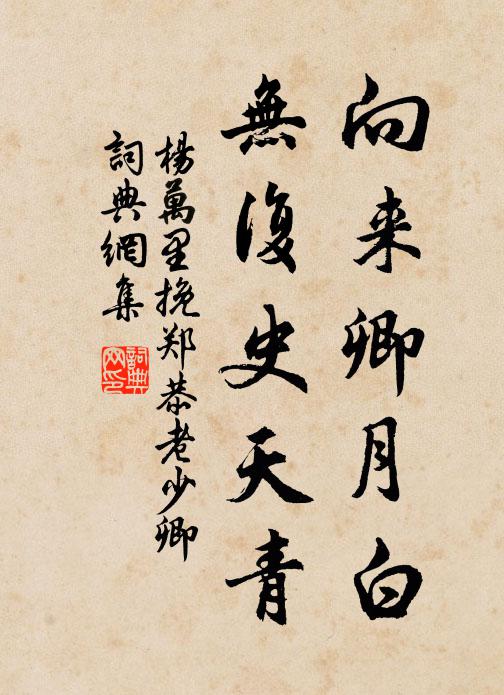 向来卿月白
無復史天青
楊萬里挽郑恭老少卿
詞典網集
詞典网印